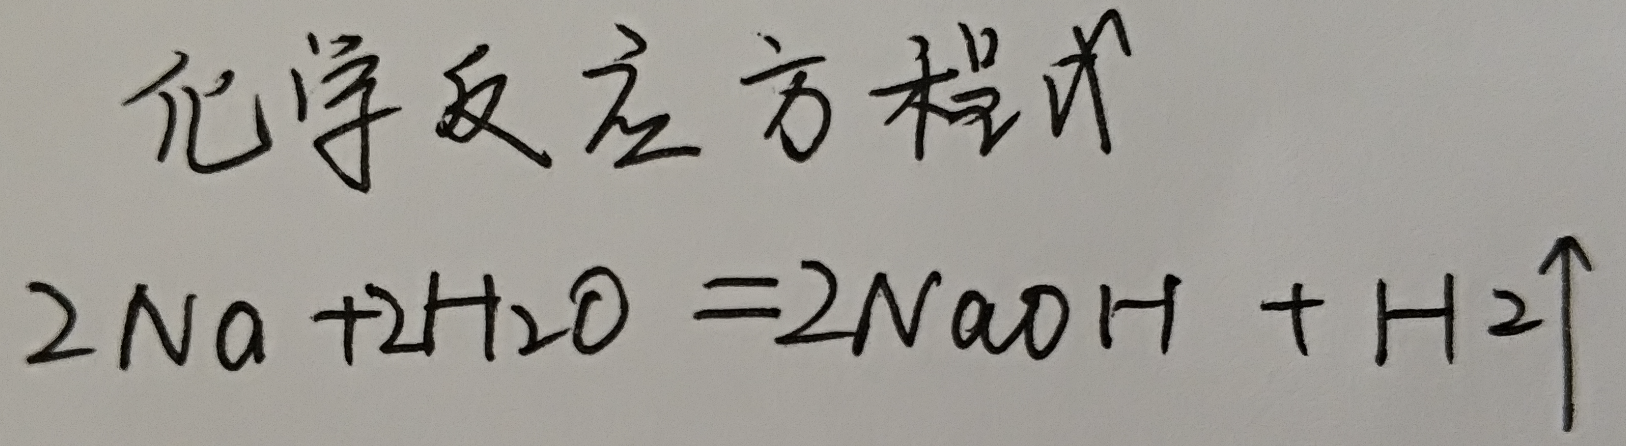 化学反应方程式
2Na+2H₂O=2NaOH + H₂↑